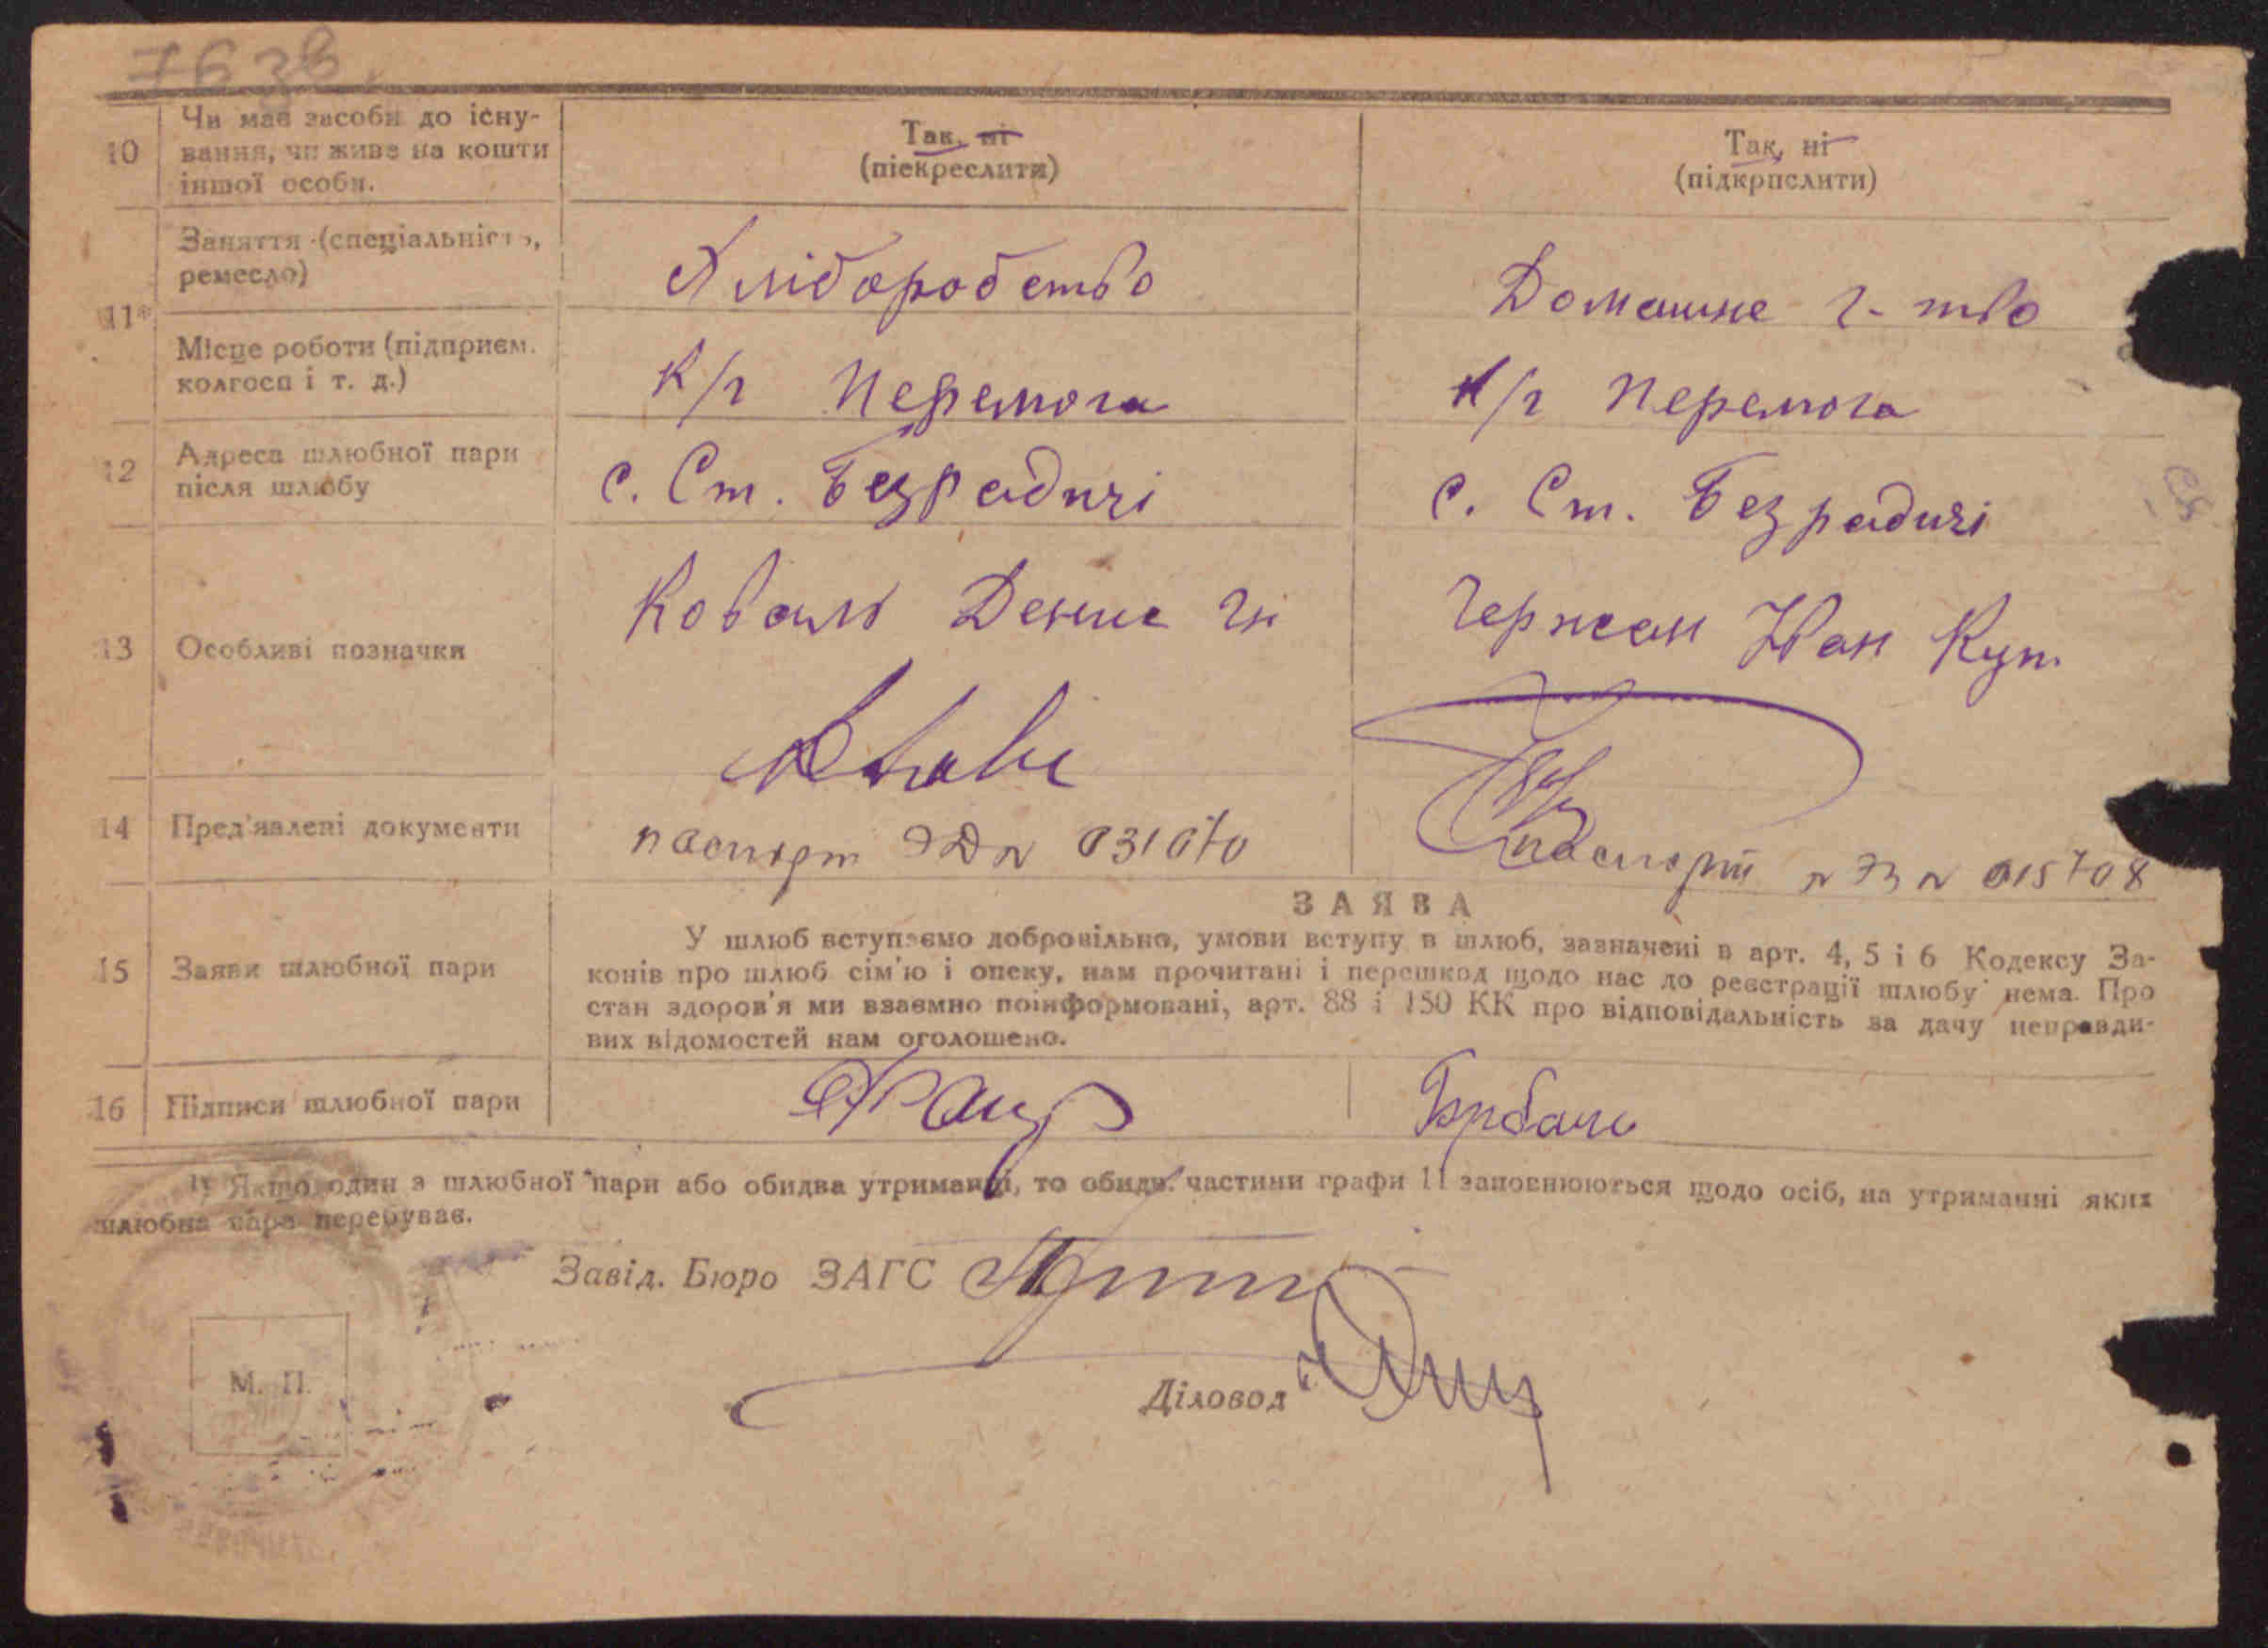 7638.
10
Чи має засоби до існу-
вання, чи живе на кошти
іншої особи.
Так, ні
(піекреслити)
Так, ні
(підкрпслити)
11*
Заняття (спеціальність,
ремесло)
Хліборобство
Домашне г-тво
Місце роботи (підприєм.
колгосп і т. д.)
к/г Перемога
к/г Перемога
12
Адреса шлюбної пари
після шлюбу
с. Ст. Безрадичі
с. Ст. Безрадичі
13
Особливі позначки
Коваль Денис
14
Пред'явлені документи
паспорт ЭД N 031070
паспорт N ЭЗ N 015708
15
Заяви шлюбної пари
ЗАЯВА
У шлюб вступаємо добровільно, умови вступу в шлюб, зазначені в арт. 4, 5 і 6 Кодексу За-
конів про шлюб сім'ю і опеку, нам прочитані і перешкод щодо нас до реєстрації шлюбу нема. Про
стан здоров'я ми взаємно поінформовані, арт. 88 і 150 КК про відповідальність за дачу неправди-
вих відомостей нам оголошено.
16
Підписи шлюбної пари
1) Якщо один з шлюбної пари або обидва утриманці, то обидв. частини графи 11 заповнюються щодо осіб, на утриманні яких
шлюбна пара перебуває.
Завід. Бюро ЗАГС
М. П.
Діловод